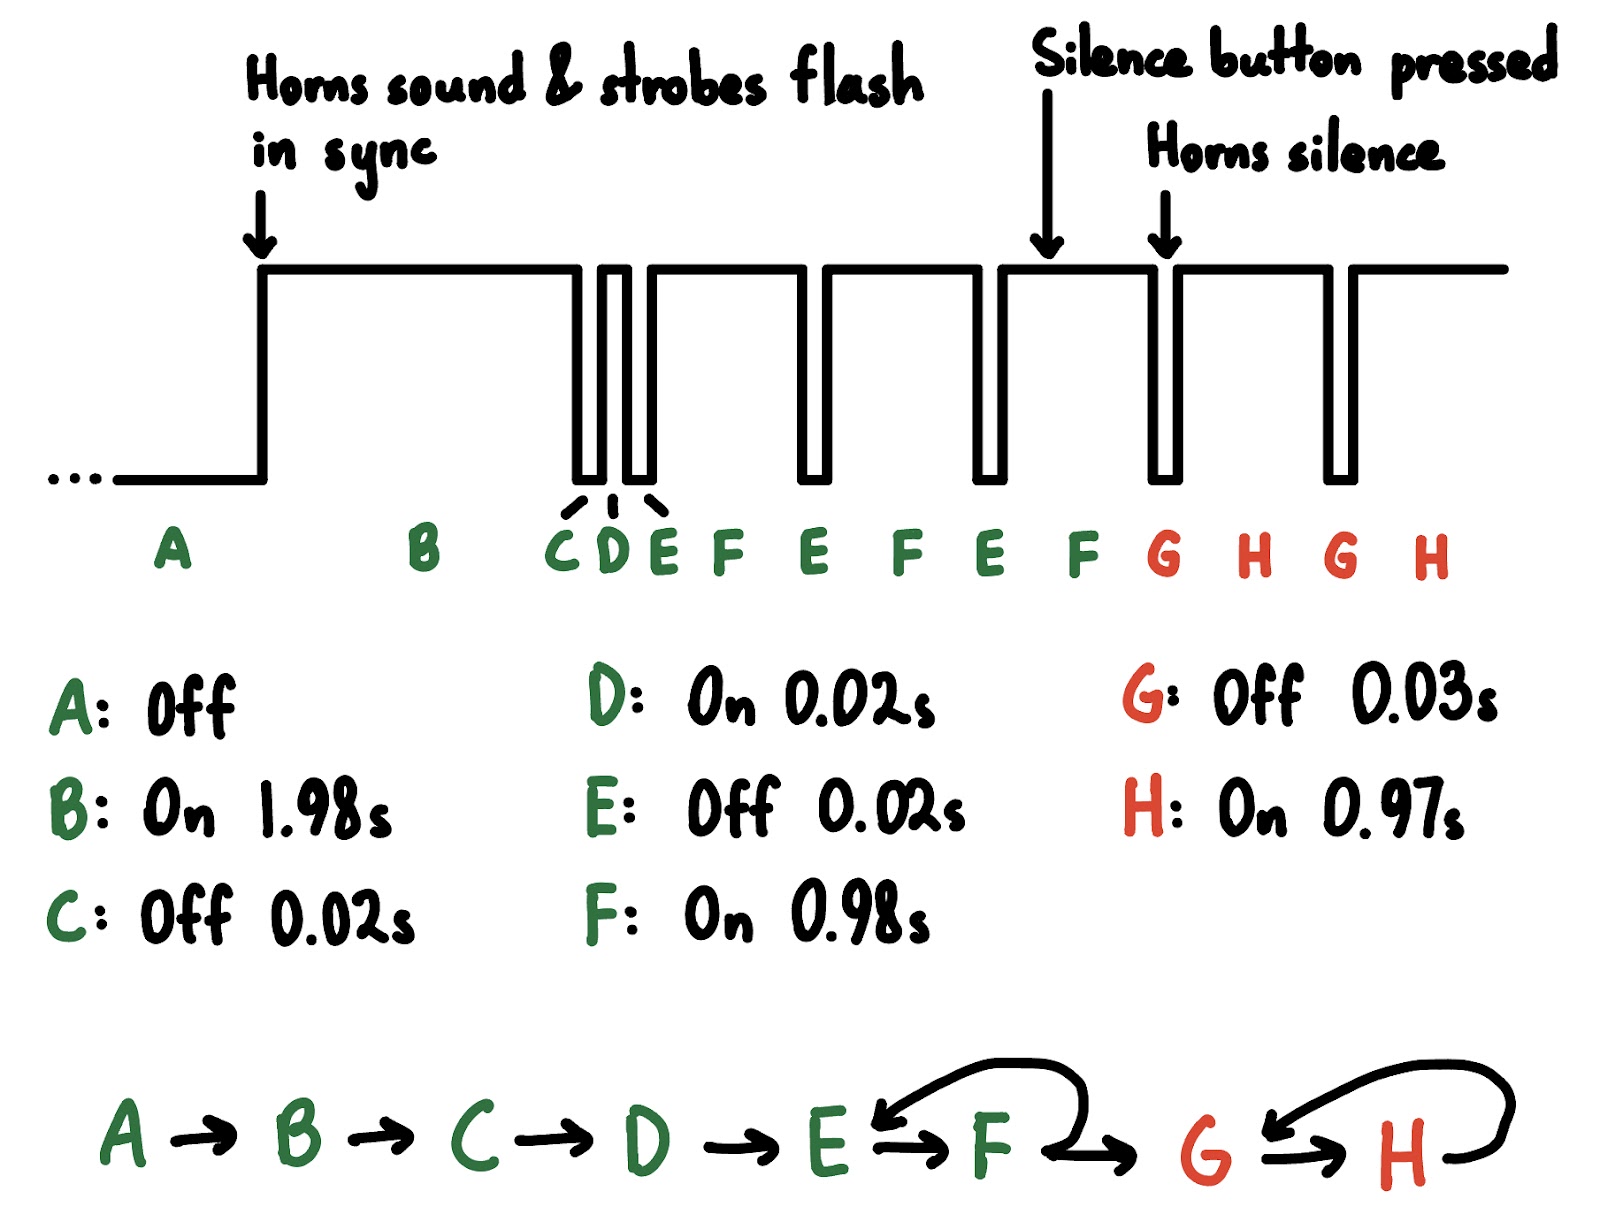 Horns sound & strobes flash
in sync
Silence button pressed
Horns silence
...
A B C D E F E F E F G H G H
A: Off
B: On 1.98s
C: Off 0.02s
D: On 0.02s
E: Off 0.02s
F: On 0.98s
G: Off 0.03s
H: On 0.97s
A → B → C → D → E → F → G → H